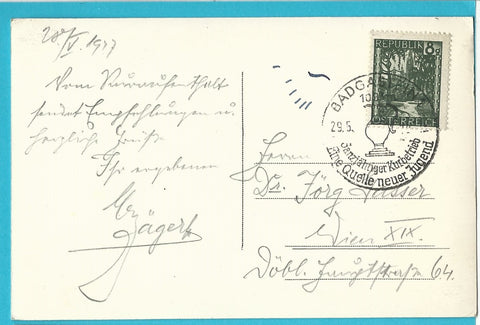 28./V. 1947
Vom Kuraufenthalt
sendet Empfehlungen u.
herzliche Grüße
Ihr ergebener
Jägert
REPUBLIK 8g
ÖSTERREICH
BADGASTEIN
29.5.
Ganzjähriger Kurbetrieb
Eine Quelle neuer Jugend
Herrn
Dr. Jörg
Wien XIX.
Döbl. Hauptstraße 64.